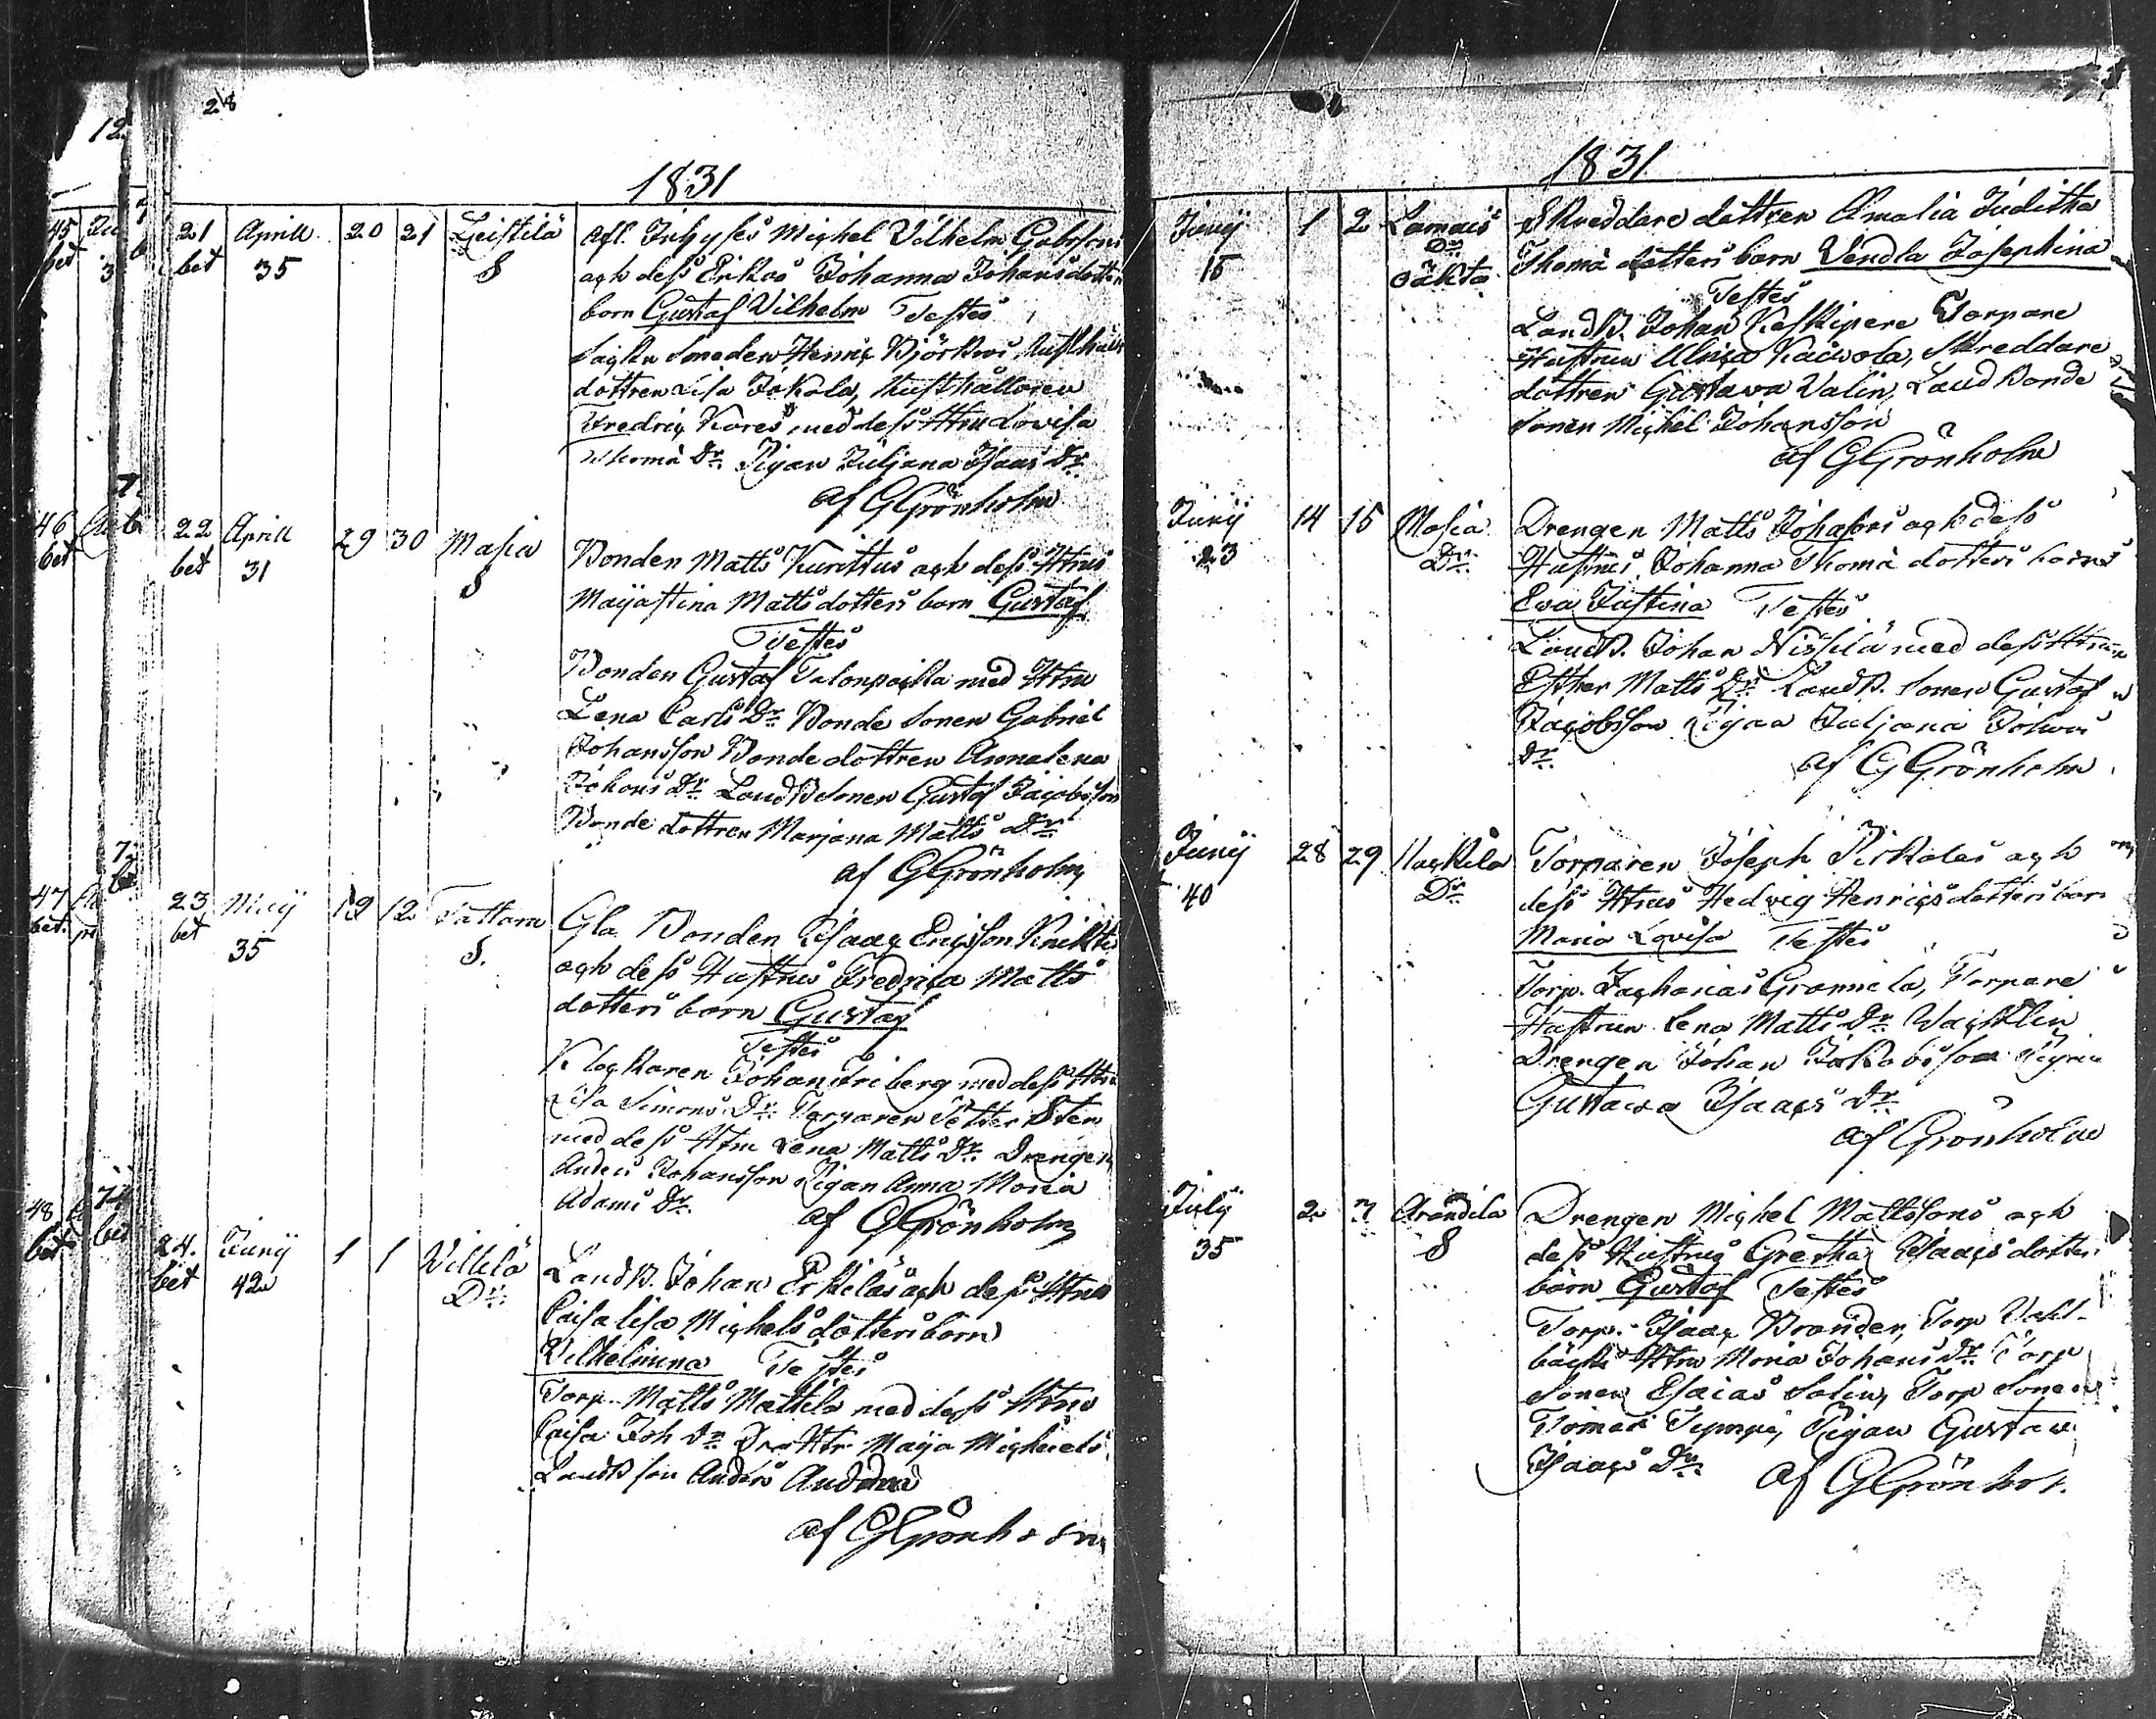 28
12
1831
45
bet
21 Aprill 20 21 Leistilä
bet 35 S
afl. Inhyses Michel Vilhelm Gabrsons
ach dess Enkas Johanna Johansdotters
barn Gustaf Vilhelm Testes
Sachn Smeden Henric Björkroos Rusthåls
dottren Lisa Jokala, Rusthållaren
Fredric Kares med dess Hru Lovisa
Thomä Dr. Pigan Juljana Isaacs Dr
af G Grönholm
46
bet
22 Aprill 29 30 Masia
bet 31 S
Bonden Matts Kurittus ach dess Hrus
Maijastina Matts dotters barn Gustaf
Testes
Bonden Gustaf Talonpoicka med Hru
Lena Carls Dr Bonde Sonen Gabriel
Johansson Bonde dottren Annalena
Johans Dr. LandB Sonen Gustaf Jacobsson
Bonde dottren Marjana Matts Dr
af G Grönholm
47
bet.
23 Maij 12 Tattara
bet 35 S.
Gla Bonden Isaac Ericsson
ach dess Hustrus Fredrica Matts
dotters barn Gustaf
Testes
Klockaren Johan Friberg med dess Hru
Lisa Simons Dr. Torparen Petter Sten
med dess Hru Lena Matts Dr. Drengen
Anders Johansson Pigan Anna Maria
Adams Dr.
af G Grönholm
48
bet
24. Junij 1 1 Villilä
bet 42 Dr.
LandB. Johan Erkiläs ach dess Hrus
Caisa Lisa Michels dotters barn
Vilhelmina Testes
Torp. Matts Mattila med dess Hru
Caisa Joh Dr Maija Michels
LandB son Anders
af G Grönholm
1831
Junij 1 2 Lamais
15 Dr
oäkta
Skreddare dottren Amalia Juditha
Thomä dotters barn Vendla Josephina
Testes
LandB. Johan Keskipere Torpare
Hustrun Ulrica Kaivola, Skreddare
dottren Gustava Valin, Land Bonde
Sonen Michel Johansson
af G Grönholm
Junij 14 15 Masia
23 Dr.
Drengen Matts Johansons ach dess
Hustrus Johanna Thomä dotters barn
Eva Justina Testes
LandB. Johan Nissilä med dess Hru
Esther Matts Dr LandB. Sonen Gustaf
Jacobsson Pigan Juljana Johans
Dr.
af G Grönholm
Junij 28 29 Hackila
40 Dr
Torparen Joseph Pirkolas ach
dess Hrus Hedvig Henrics dotters barn
Maria Lovisa Testes
Torp. Zacharias Grannila, Torpare
Hustrun Lena Matts Dr. Wachtlin
Drengen Johan Jakobsson Pigan
Gustava Isaacs Dr.
af Grönholm
Julij 2 3 Arandila
35 S
Drengen Michel Mattssons ach
dess Hustrus Gretha Isaacs dotters
barn Gustaf Testes
Torp. Isaac Brander, Torp Vahl-
bäcks Hru Maria Johans Dr. Torp
Sonen Esaias Salin, Torp Sonen
Tomas Tympi, Pigan Gustava
Isaacs Dr.
af G Grönhol.